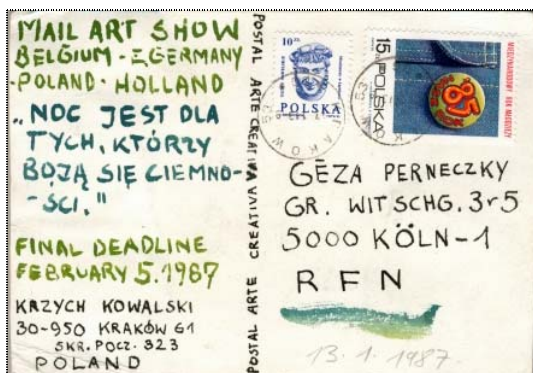 MAIL ART SHOW
BELGIUM - E.GERMANY
·POLAND · HOLLAND
„NOC JEST DLA
TYCH, KTÓRZY
BOJĄ SIĘ CIEMNO-
-ŚCI."
FINAL DEADLINE
FEBRUARY 5.1987
KRZYCH KOWALSKI
30-950 KRAKÓW 61
SKR. POCZ. 823
POLAND
POSTAL ARTE CREATIVA
POSTAL ARTE CREATIVA
10 ZŁ
POLSKA
15 ZŁ
POLSKA
MIĘDZYNARODOWY ROK MŁODZIEŻY
85
GÉZA PERNECZKY
GR. WITSCHG. 3-5
5000 KÖLN-1
RFN
13.1.1987.